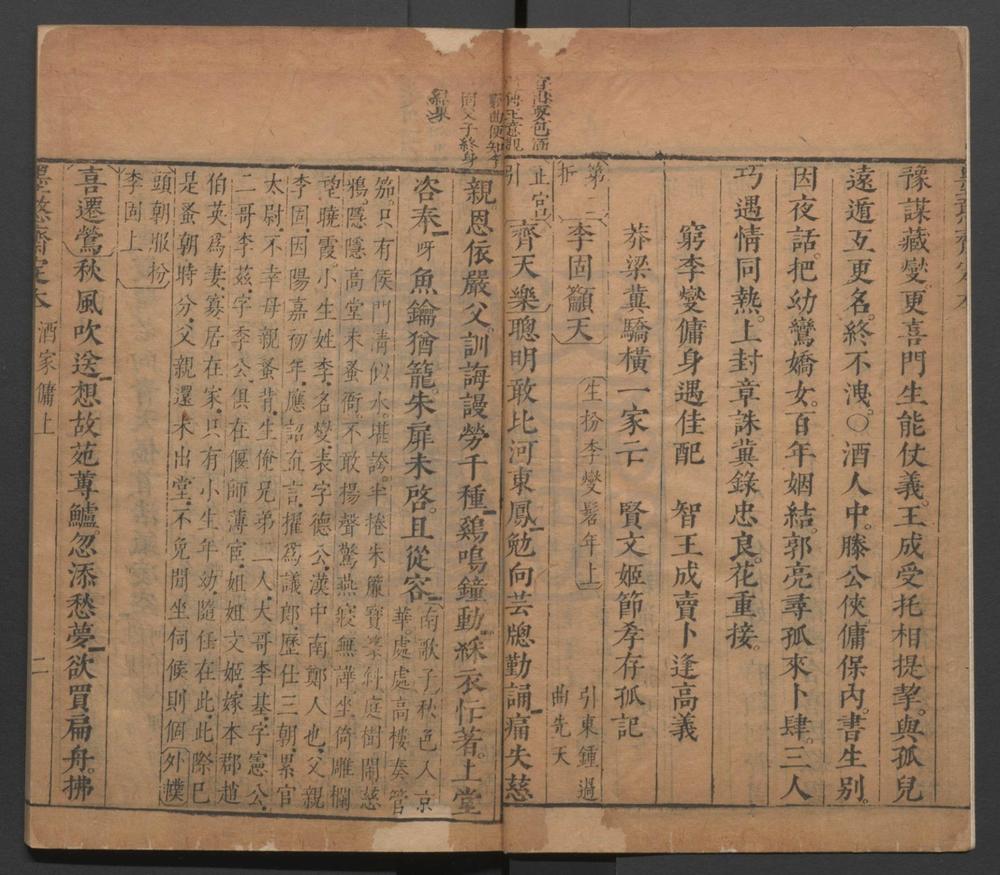 豫謀藏爕更喜門生能仗義王成受托相提挈與孤兒
遠遁互更名終不洩〇酒人中滕公俠傭保內書生別
因夜話把幼鸞嬌女百年姻結郭亮尋孤來卜肆三人
巧遇情同熱上封章誅冀錄忠良花重接
窮李爕傭身遇佳配 智王成賣卜逢高義
莽梁冀驕橫一家亡 賢文姬節孝存孤記
第二折
李固籲天 生扮李爕髫年上 引東鍾過曲先天
正宮引
齊天樂聰明敢比河東鳳勉向芸牕勤誦痛失慈
親恩依嚴父訓誨謾勞千種鷄鳴鐘動綵衣忙著上堂
咨奉呀魚鑰猶籠朱扉未啓且從容
南歌子秋色入京
華處處高樓奏管
笳只有侯門清似水堪誇半捲朱簾寶篆斜庭樹鬧慈
鴉隱隱高堂未蚤衙不敢楊聲驚燕寢無譁坐倚雕欄
望曉霞小生姓李名爕表字德公漢中南鄭人也父親
李固因陽嘉初年應詔直言擢爲議郎歷仕三朝累官
太尉不幸母親蚤背生俺兄弟三人大哥李基字憲公
二哥李茲字季公俱在偃師薄宦姐姐文姬嫁本郡趙
伯英爲妻寡居在家只有小生年幼隨任在此此際已
是蚤朝時分父親還未出堂不免閒坐伺候則個 外幞
頭朝服扮
李固上
喜遷鶯秋風吹送想故苑蓴鱸忽添愁夢欲買扁舟拂
墨憨齋定本 酒家傭上 二